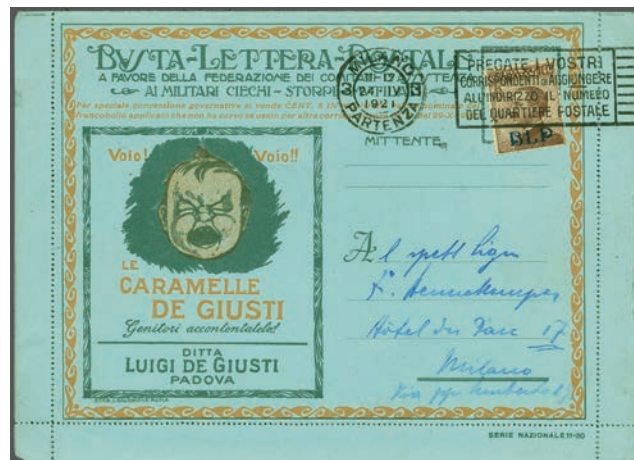 BVSTA-LETTERA-POSTALE
A FAVORE DELLA FEDERAZIONE DEI
AI MILITARI CIECHI - STORPI
Per speciale concessione governativa si vende CENT. 5
francobollo applicato che non ha corso se usato per altra
MILANO
24·IV
1921
PARTENZA
PREGATE I VOSTRI
CORRISPONDENTI DI AGGIUNGERE
ALL'INDIRIZZO IL NUMERO
DEL QUARTIERE POSTALE
BLP
MITTENTE
Voio!
Voio!!
LE
CARAMELLE
DE GIUSTI
Genitori accontentatele!
DITTA
LUIGI DE GIUSTI
PADOVA
Al spett Sign
Hôtel du Parc 17
Milano
Via Umberto
SERIE NAZIONALE 11-30